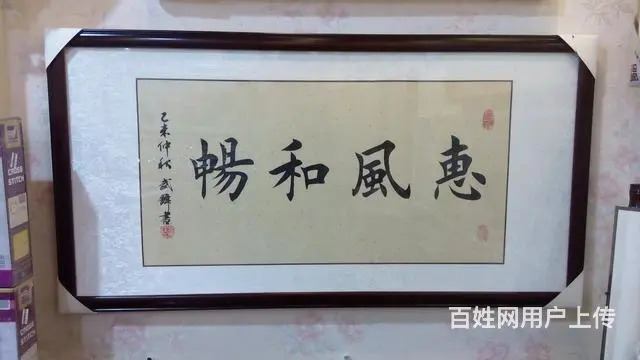 惠風和暢
乙未仲秋 武 書
CROSS
STITCH
百姓网用户上传